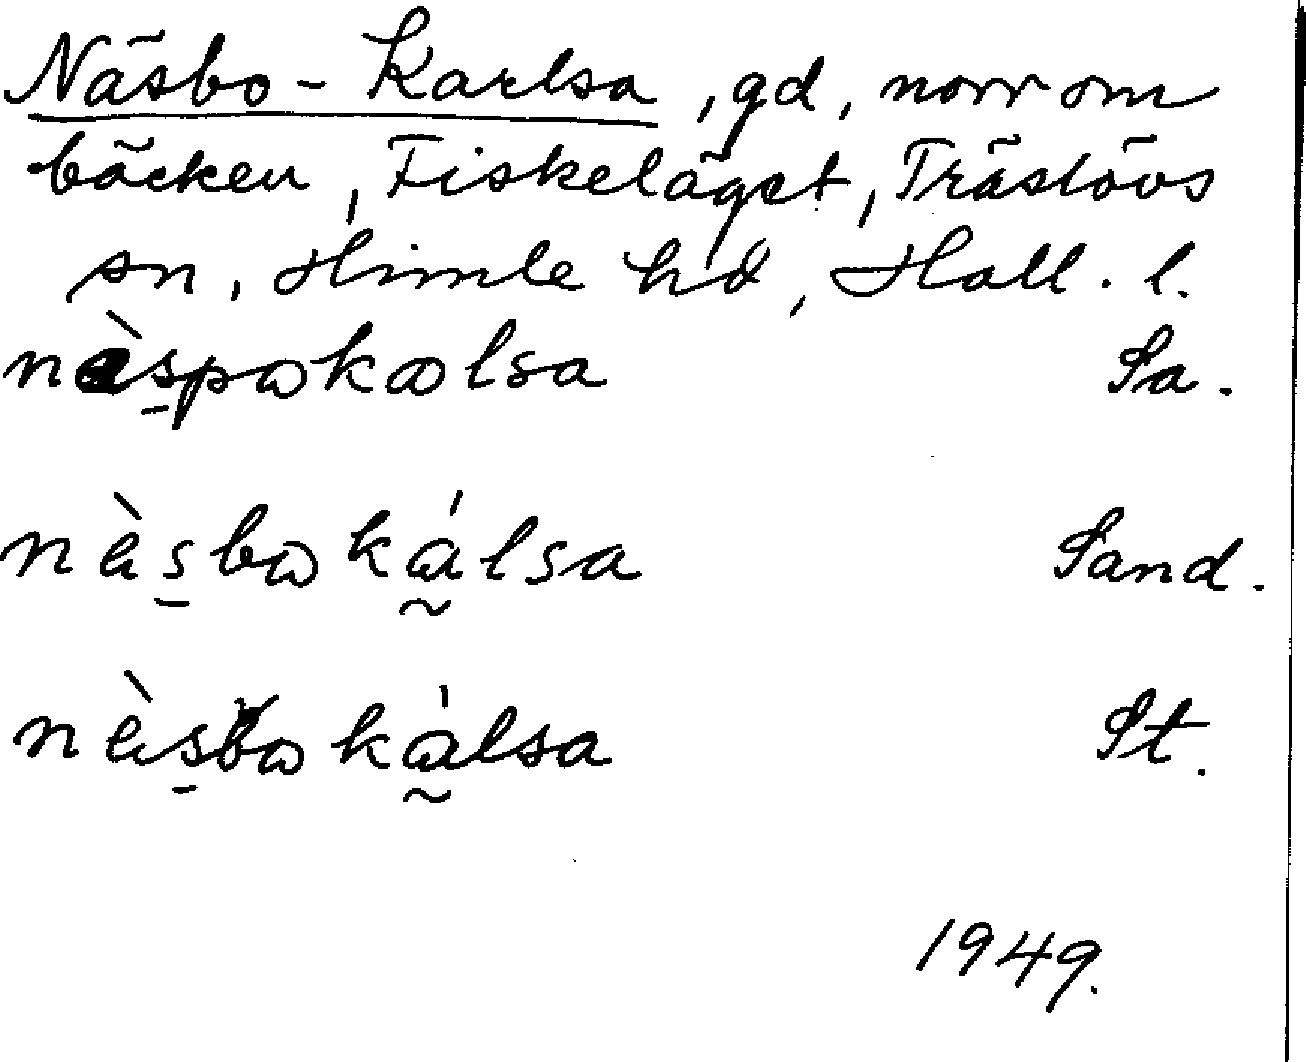 Näsbo-Karlsa, gd, norr om
bäcken, Fiskeläget, Träslövs
sn, Himle hd, Hall. l.
nàspωkalsa Sa.
nèsbωkálsa Sand.
nèsbωkálsa St.
1949.